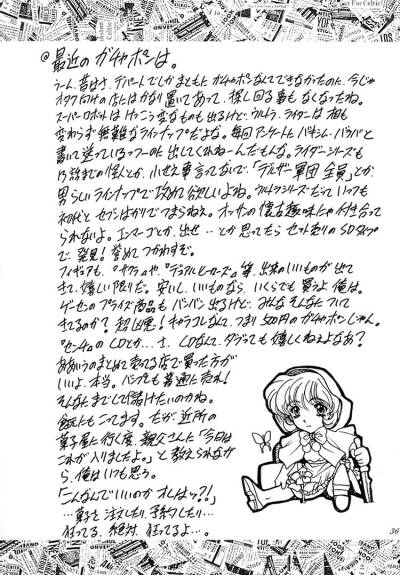 @最近のガチャポンは。
うーん、昔はさ、デパートでしかまともにガチャポンなんてできなかったのに、今じゃ
オタク向けの店にはかなり置いてあって、探し回る事もなくなったね。
スーパーロボットはけっこう変なものも出るけど、ウルトラ、ライダーは相も
変わらず無難なラインナップだよな。毎回アンケートにバキシム・バラバと
書いて送っているっつーのに出してくれねーんだもんな。ライダーシリーズも
13話までの怪人とか、小せえ事言ってないで、「デルザー軍団全員」とか、
男らしいラインナップで攻めて欲しいよね。ウルトラシリーズだっていつも
初代とセブンばかりでつまらねえ。オッサンの懐古趣味にゃ付き合って
られないよ。エンマーゴとか、出せ…とか思ってたらセット売りのSDタイプ
で、発見！誉めてつかわすぞ。
フィギュアも、『サクラ』や、『デュアルヒーローズ』等、出来のいいものが出て
きて、嬉しい限りだ。安いし、いいものなら、いくらでも買うよ俺は。
ゲーセンのプライズ商品もバンバン出るけど、みんなそんなについて
きてるのか？超出費！キャラコレなんて、つまり500円のガチャポンじゃん。
『センチ』のCDとか…さ、CDなんて、ダブっても嬉しくねえよなあ？
ああいうのまとめて売ってる店で買った方が
いいよ、本当。バンプレも普通に売れ！
そんなにまでして儲けたいのかね。
食玩にもこってます。だが、近所の
菓子屋に行く度、親父さんに「今日は
これが入りましたよ。」と教えられなが
ら、俺はいつも思う。
「こんなんでいいのか オレはッ?!」
…菓子を注文したり、予約したり…
狂ってる、絶対、狂ってるよ…。
36